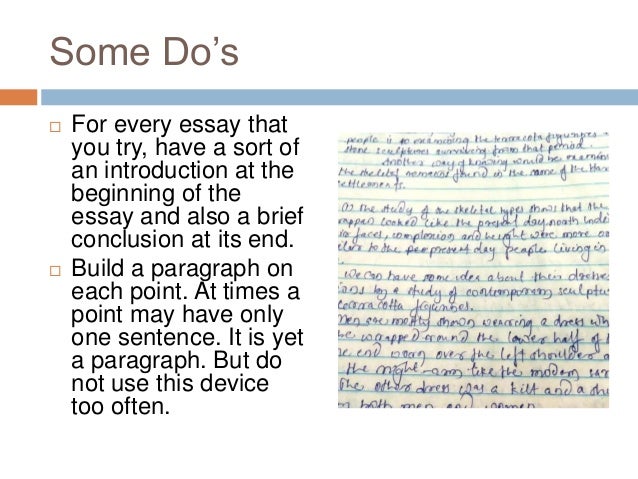 Some Do's
For every essay that
you try, have a sort of
an introduction at the
beginning of the
essay and also a brief
conclusion at its end.
Build a paragraph on
each point. At times a
point may have only
one sentence. It is yet
a paragraph. But do
not use this device
too often.
people is to examining the terracota figurines
sculptures surviving from that period.
Another way of knowing would be examin
the skeletal remains found in the some of the Har
settlements.
As the study of the skeletal types shows that the
looked like the present day north Indi
faces, complexion and height were more or
to the present day people living in
We can have some idea about their dresse
by a study of contemporary sculptu
terracotta figurines.
Men are mostly shown wearing a dress wh
be wrapped around the lower half of
end worn over the left shoulder
the right arm like the modern sar
the other dress was a kilt and a sh
both men and women